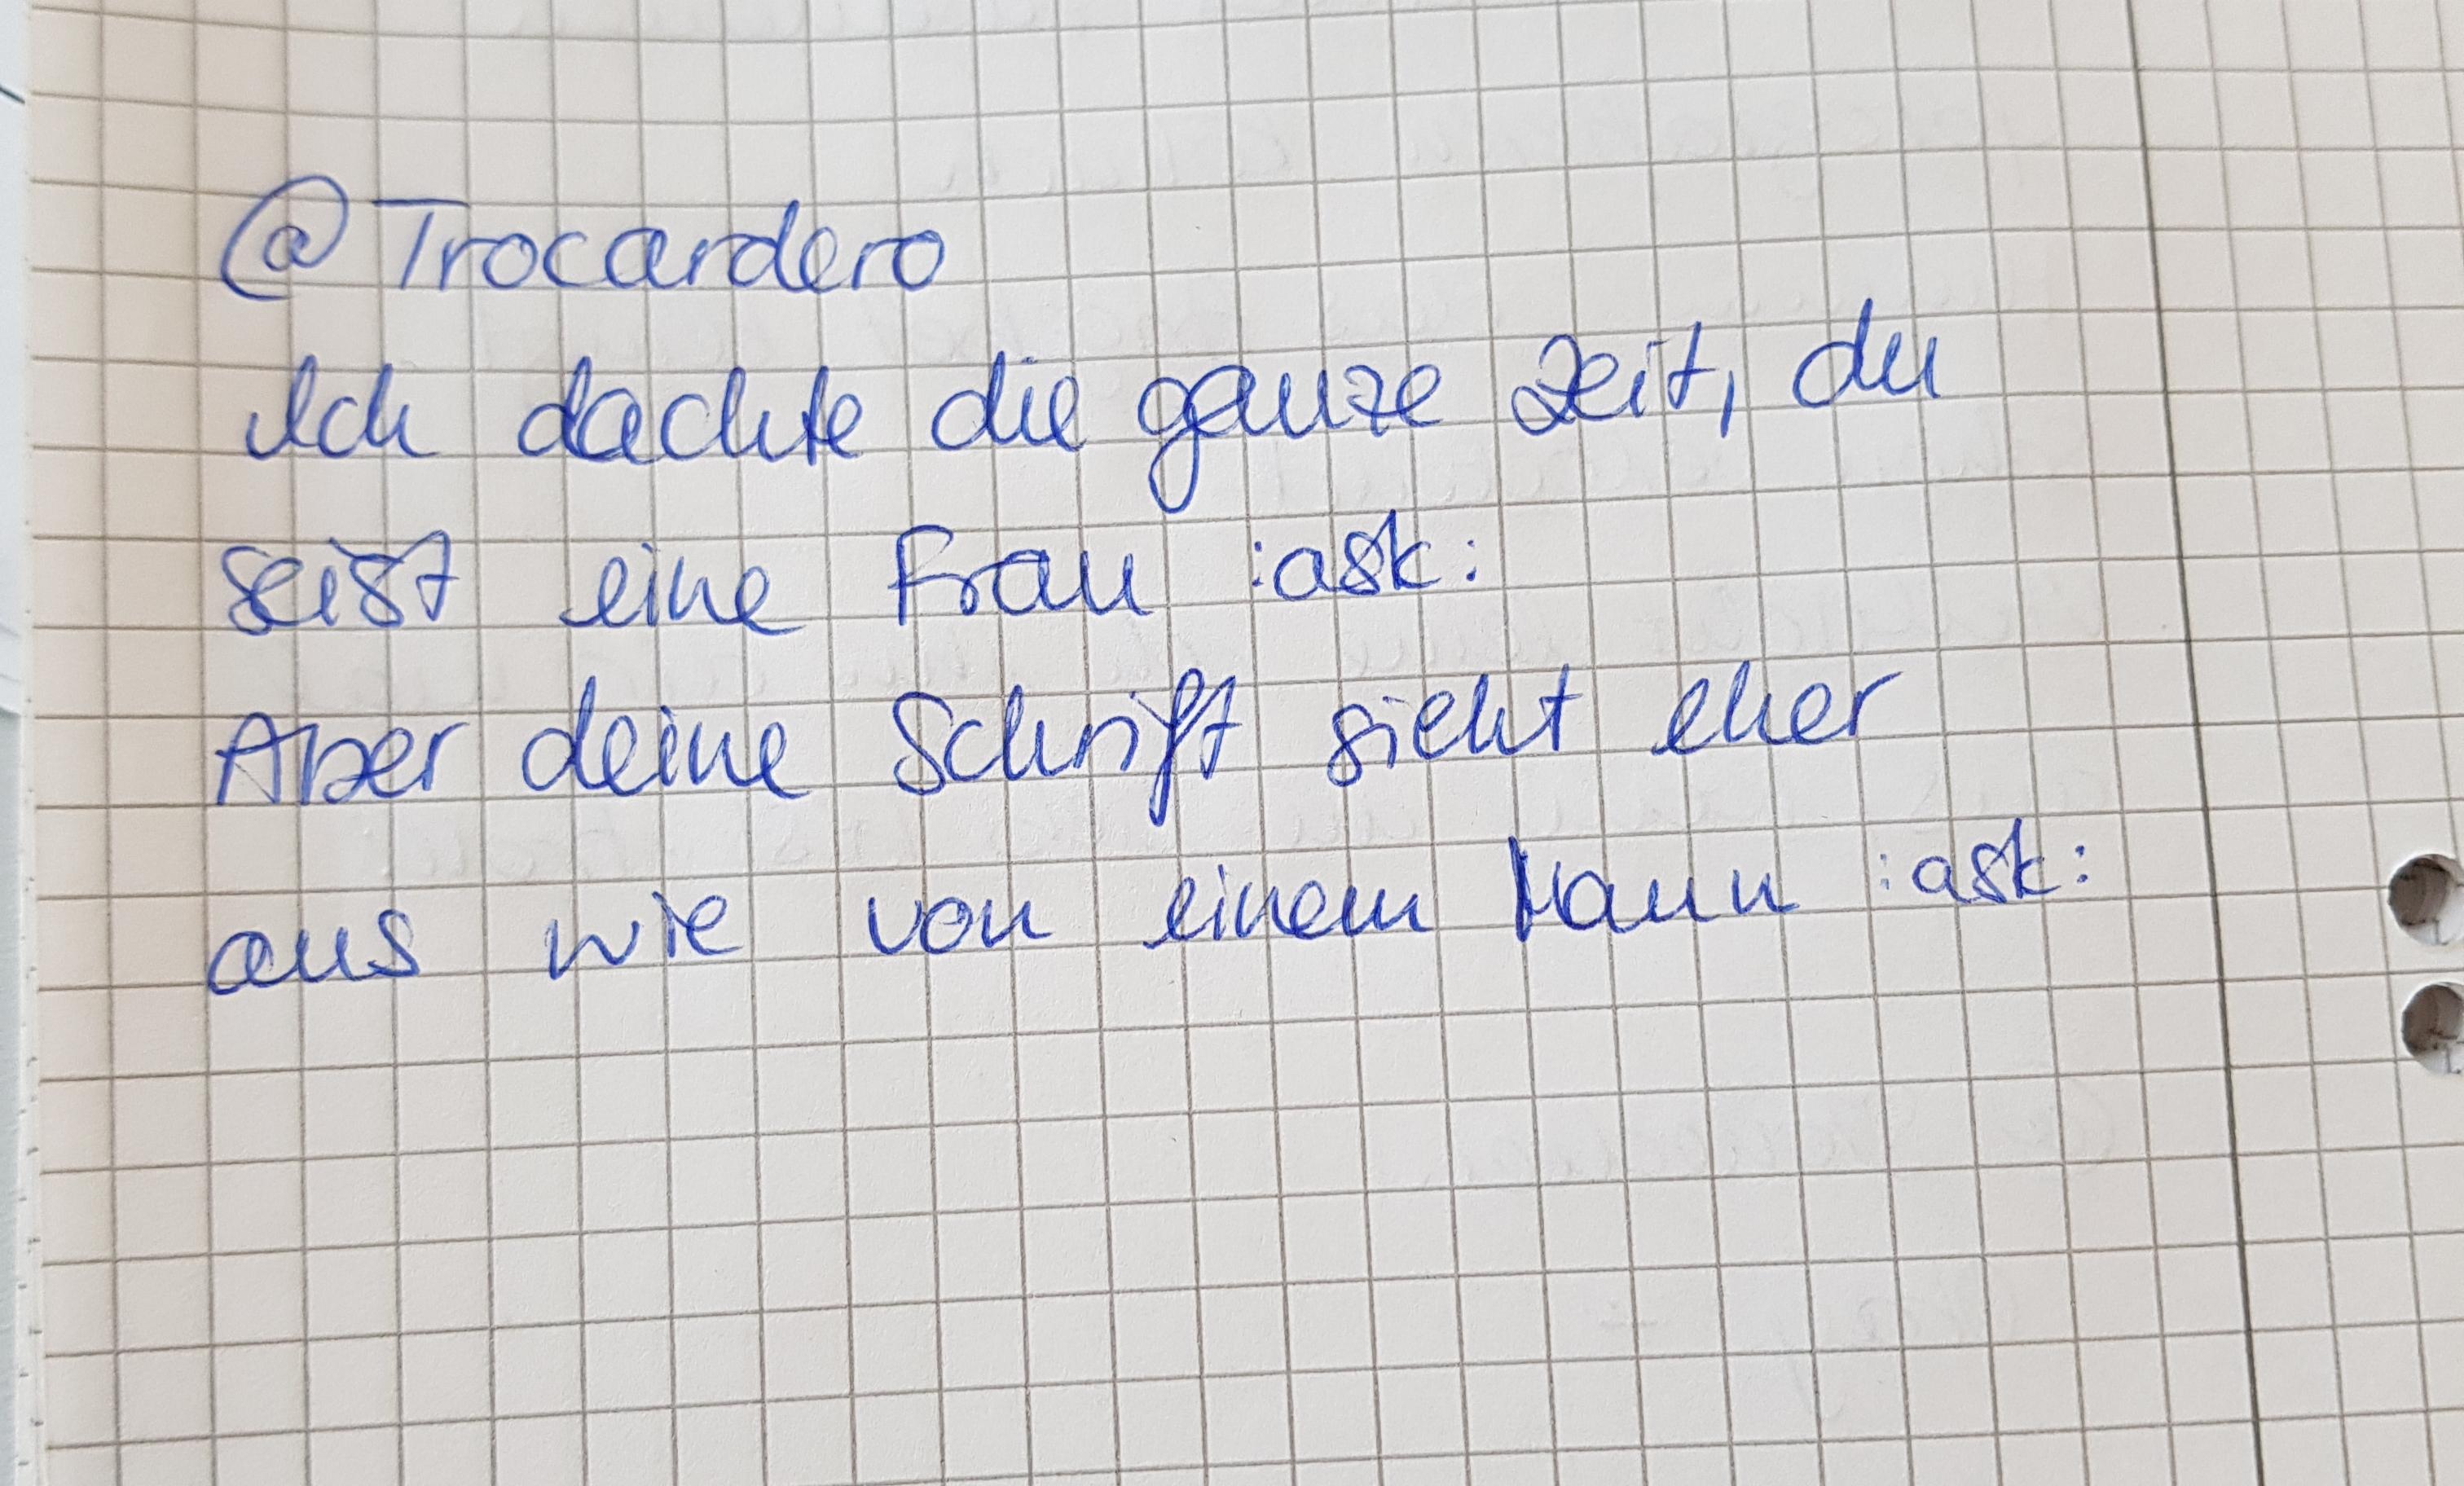 @Trocardero
Ich dachte die ganze Zeit, du
seist eine Frau :ask:
Aber deine Schrift sieht eher
aus wie von einem Mann :ask: